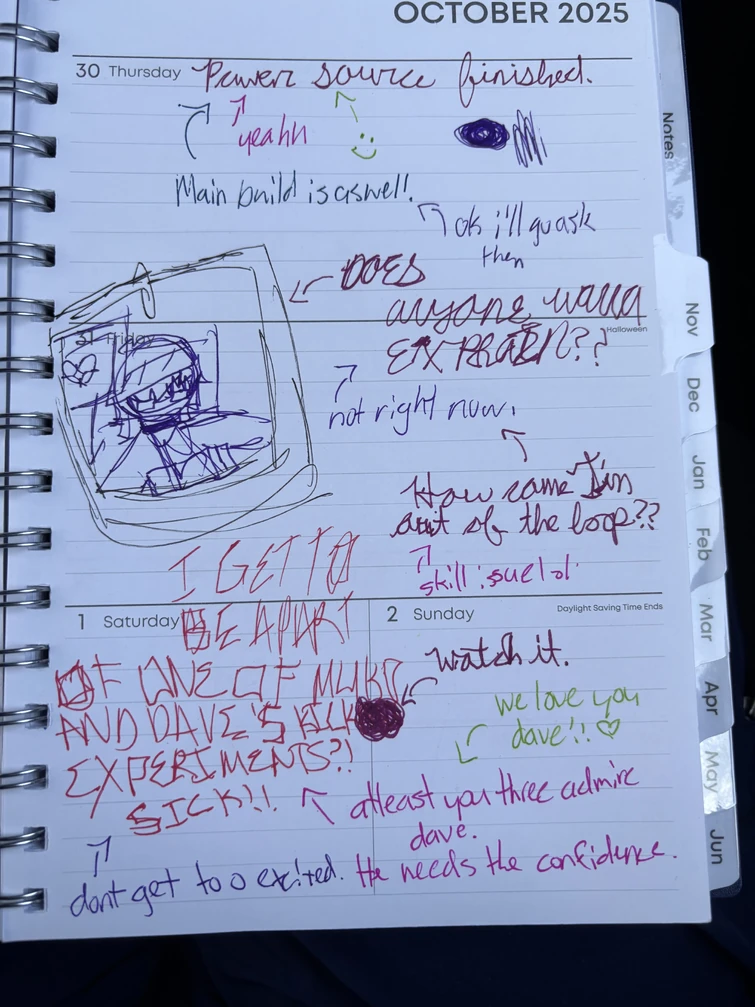 OCTOBER 2025
30 Thursday
Power source finished.
yeahh
Main build is aswell!
ok i'll go ask
then
DOES
anyone wanna
EXPLAIN??
31 Friday
Halloween
not right now.
How come I'm
out of the loop??
skill issue lol
I GET TO
1 Saturday
BE APART
OF ONE OF
AND DAVE'S
EXPERIMENTS?!
SICK!!
2 Sunday
Daylight Saving Time Ends
Watch it.
we love you
dave!! ♡
atleast you three admire
dave.
He needs the confidence.
dont get too excited.
Notes
Nov
Dec
Jan
Feb
Mar
Apr
May
Jun